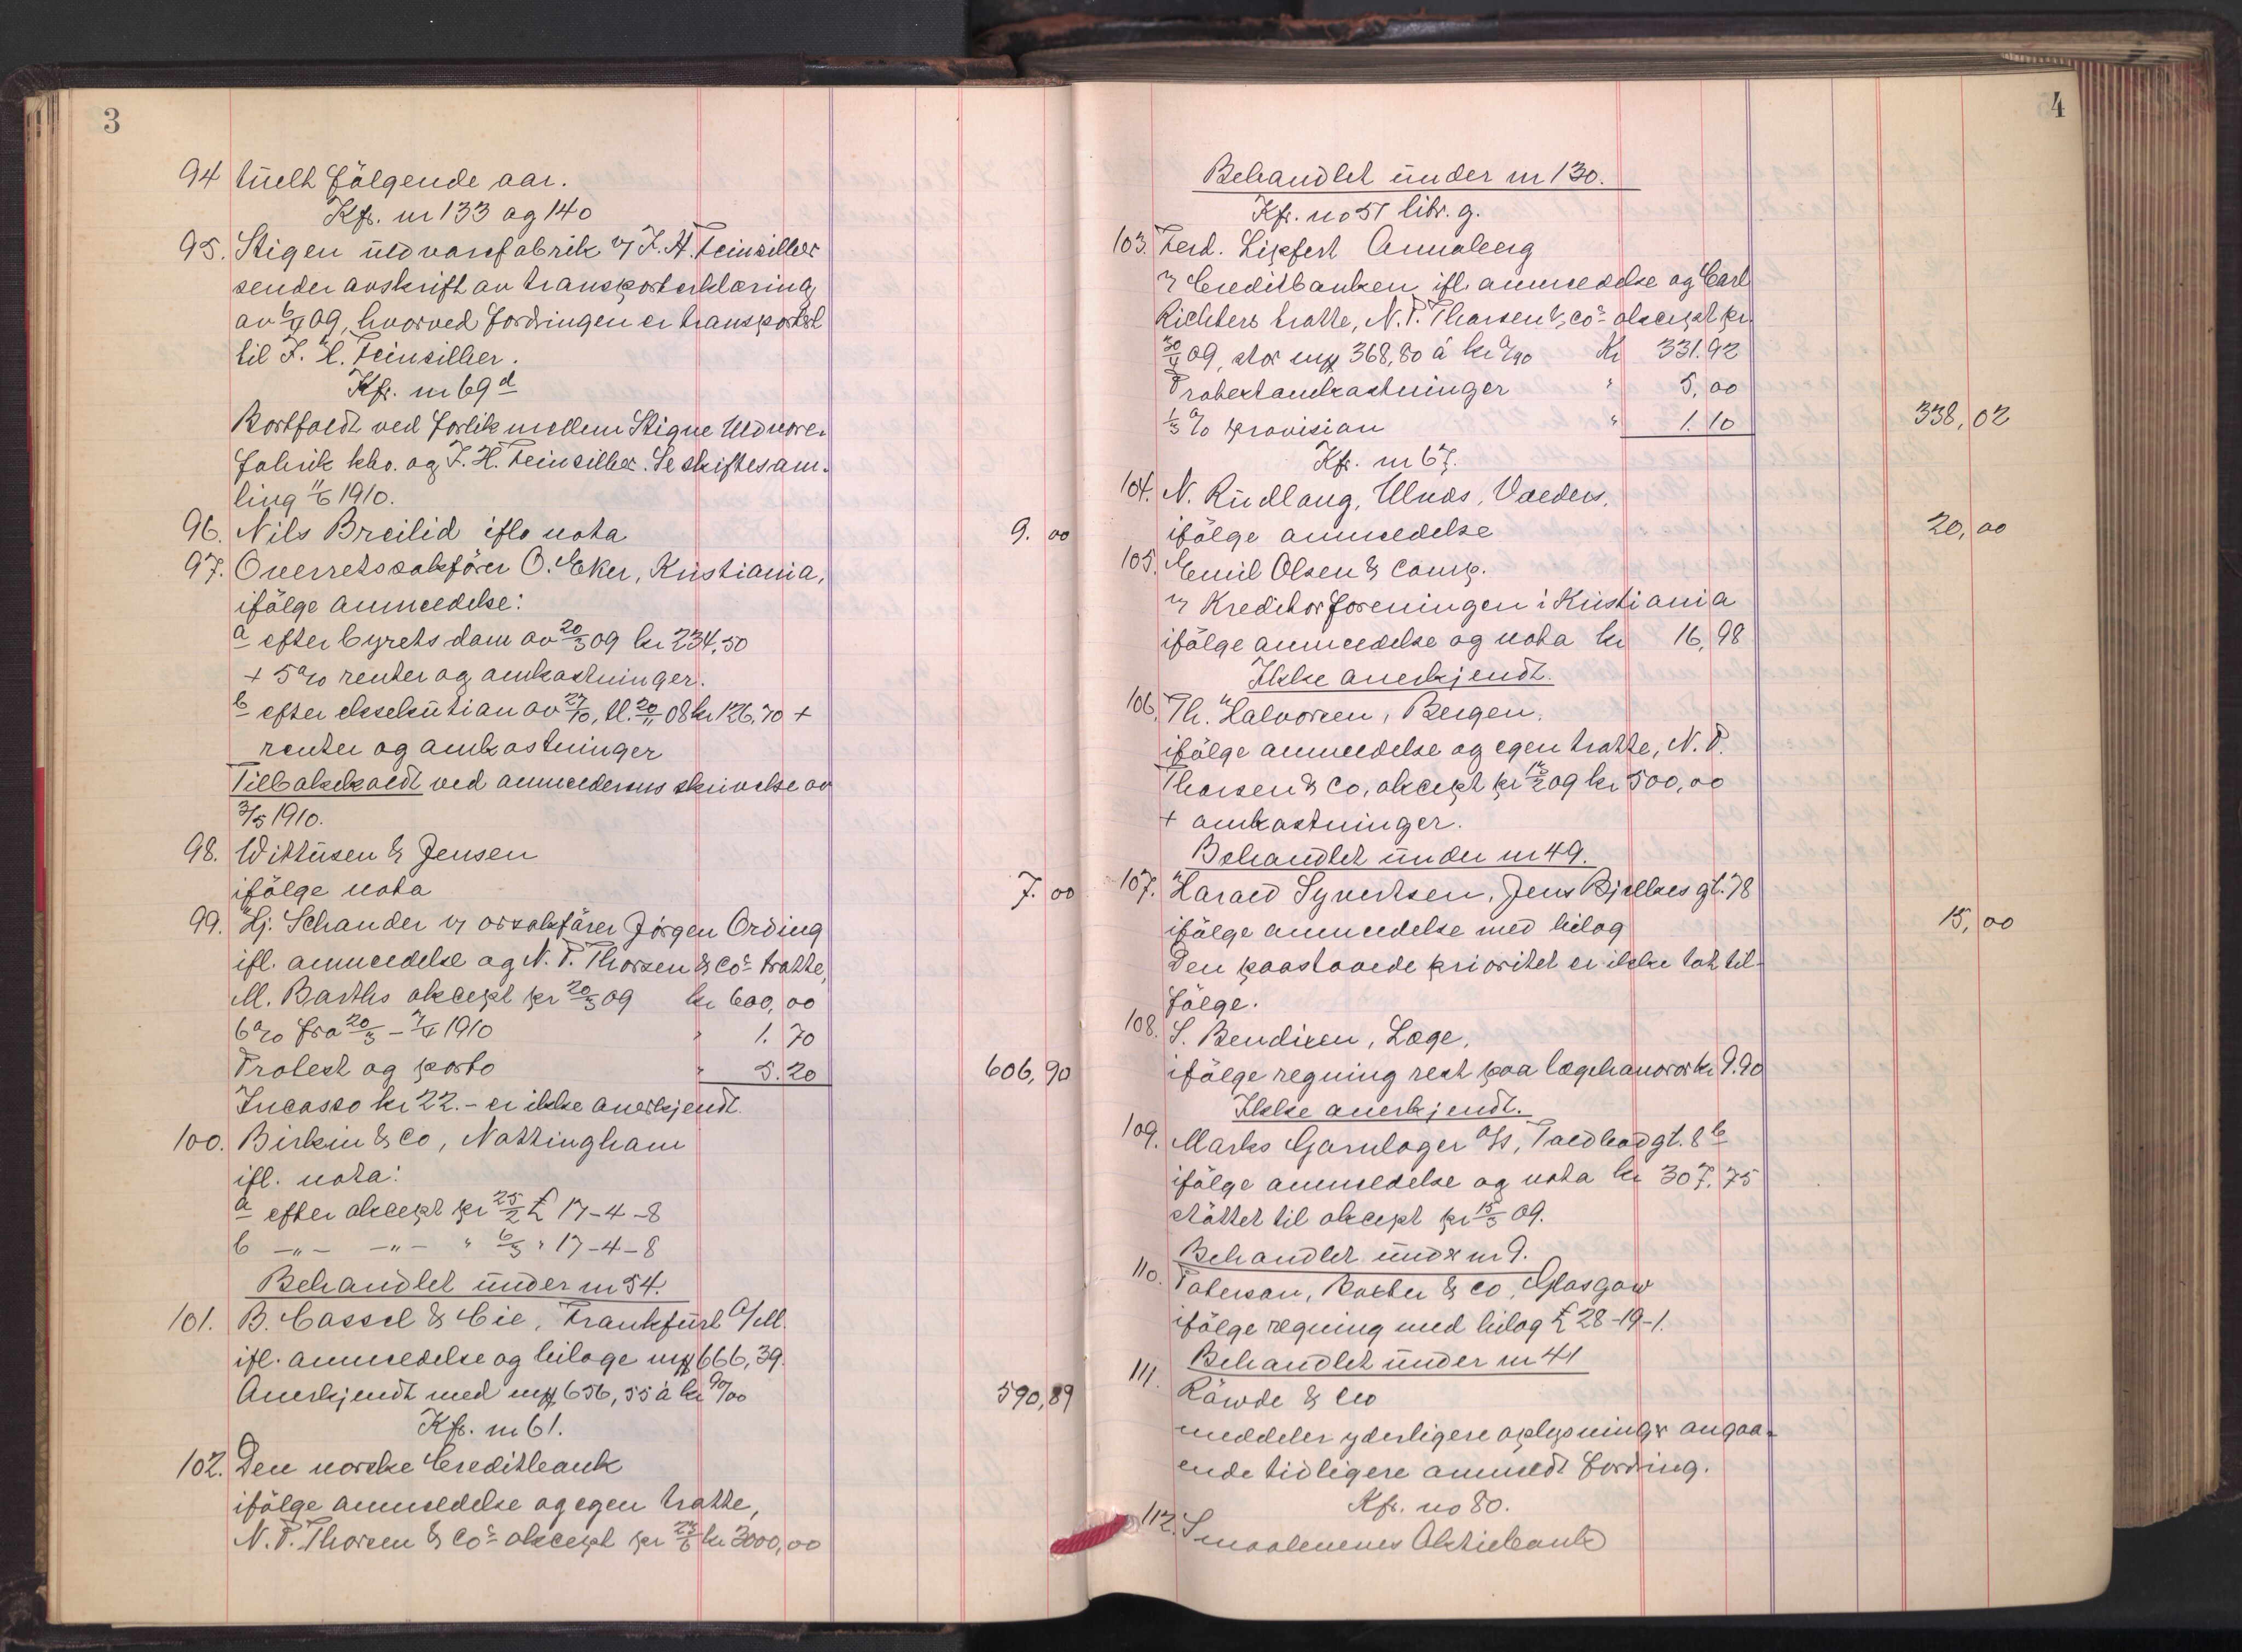 3
94 tuelt følgende aar.
Kfr. nr 133 og 140
95. Stigen uldvarefabrik v/ J. H. Feinsilber
sender avskrift av transporterklæring
av 6/4 09, hvorved fordringen er transportert
til J. H. Feinsilber.
Kfr. nr 69 d
Bortfaldt ved forlik mellem Stigne Uldvare-
fabrik kbo. og J. H. Feinsilber. Se skiftesam-
ling 11/6 1910.
96. Nils Breilid ifl. nota 9. 00
97. Overretssakfører O. Eker, Kristiania,
ifølge anmeldelse:
a efter byretsdom av 20/3 09 kr 234,50
+ 5% renter og omkostninger.
b efter eksekution av 27/10, tl. 20/11 08 kr 126,70 +
renter og omkostninger
Tilbakekaldt ved anmelderens skrivelse av
3/5 1910.
98. Wittusen & Jensen
ifølge nota 7. 00
99. Hj. Schander v/ orsakfører Jørgen Ording
ifl. anmeldelse og N. P. Thorsen & Co's tratte,
M. Barths aksept pr 20/3 09 kr 600,00
6% fra 20/3 - 7/4 1910 " 1. 70
Protest og porto " 5.20 606,90
Incasso kr 22.- er ikke anerkjendt.
100. Birkin & Co, Nottingham
ifl. nota:
a efter aksept pr 25/2 £ 17-4-8
b -"- -"- " 6/3 " 17-4-8
Behandlet under nr 54.
101. B. Cassel & Cie, Frankfurt a/M.
ifl. anmeldelse og bilage mk 666,39.
Anerkjendt med mk 656,55 à kr 90/00 590,89
Kfr. nr 61.
102. Den norske Creditbank
ifølge anmeldelse og egen tratte,
N. P. Thorsen & Co's aksept pr 24/6 kr 3000,00
4
Behandlet under nr 130.
Kfr. no 51 litr. g.
103. Ferd. Lipfert Annaberg
v/ Creditbanken ifl. anmeldelse og Carl
Richters tratte, N. P. Thorsen & Co's aksept pr.
30/4 09, stor mk 368,80 à kr 0/90 Kr 331.92
Protestomkostninger " 5,00
1/3 % provision " 1.10 338,02
Kfr. nr 67.
104. N. Rudlang, Ulnes, Valders,
ifølge anmeldelse 20,00
105. Emil Olsen & Comp.
v/ Kreditorforeningen i Kristiania
ifølge anmeldelse og nota kr 16,98
Ikke anerkjendt.
106. Th. Halvorsen, Bergen,
ifølge anmeldelse og egen tratte, N. P.
Thorsen & Co, aksept pr 12/2 09 kr 500,00
+ omkostninger.
Behandlet under nr 49.
107. Harald Syvertsen, Jens Bjelkes gt. 78
ifølge anmeldelse med bilag 15,00
Den paastaaede prioritet er ikke tat til-
følge.
108. S. Bendixen, Læge,
ifølge regning rest paa lægehonorar kr 9.90
Ikke anerkjendt.
109. Marks Garnlager A/S, Toldbodgt. 8 b
ifølge anmeldelse og nota kr 307,75
støttet til aksept pr 15/3 09.
Behandlet under nr 9.
110. Paterson, Baxter & Co, Glasgow
ifølge regning med bilag £ 28-19-1.
Behandlet under nr 41
111. Räwde & Clo
meddeler yderligere oplysninger angaa-
ende tidligere anmeldt fordring.
Kfr. no 80.
112. Smaalenenes Aktiebank